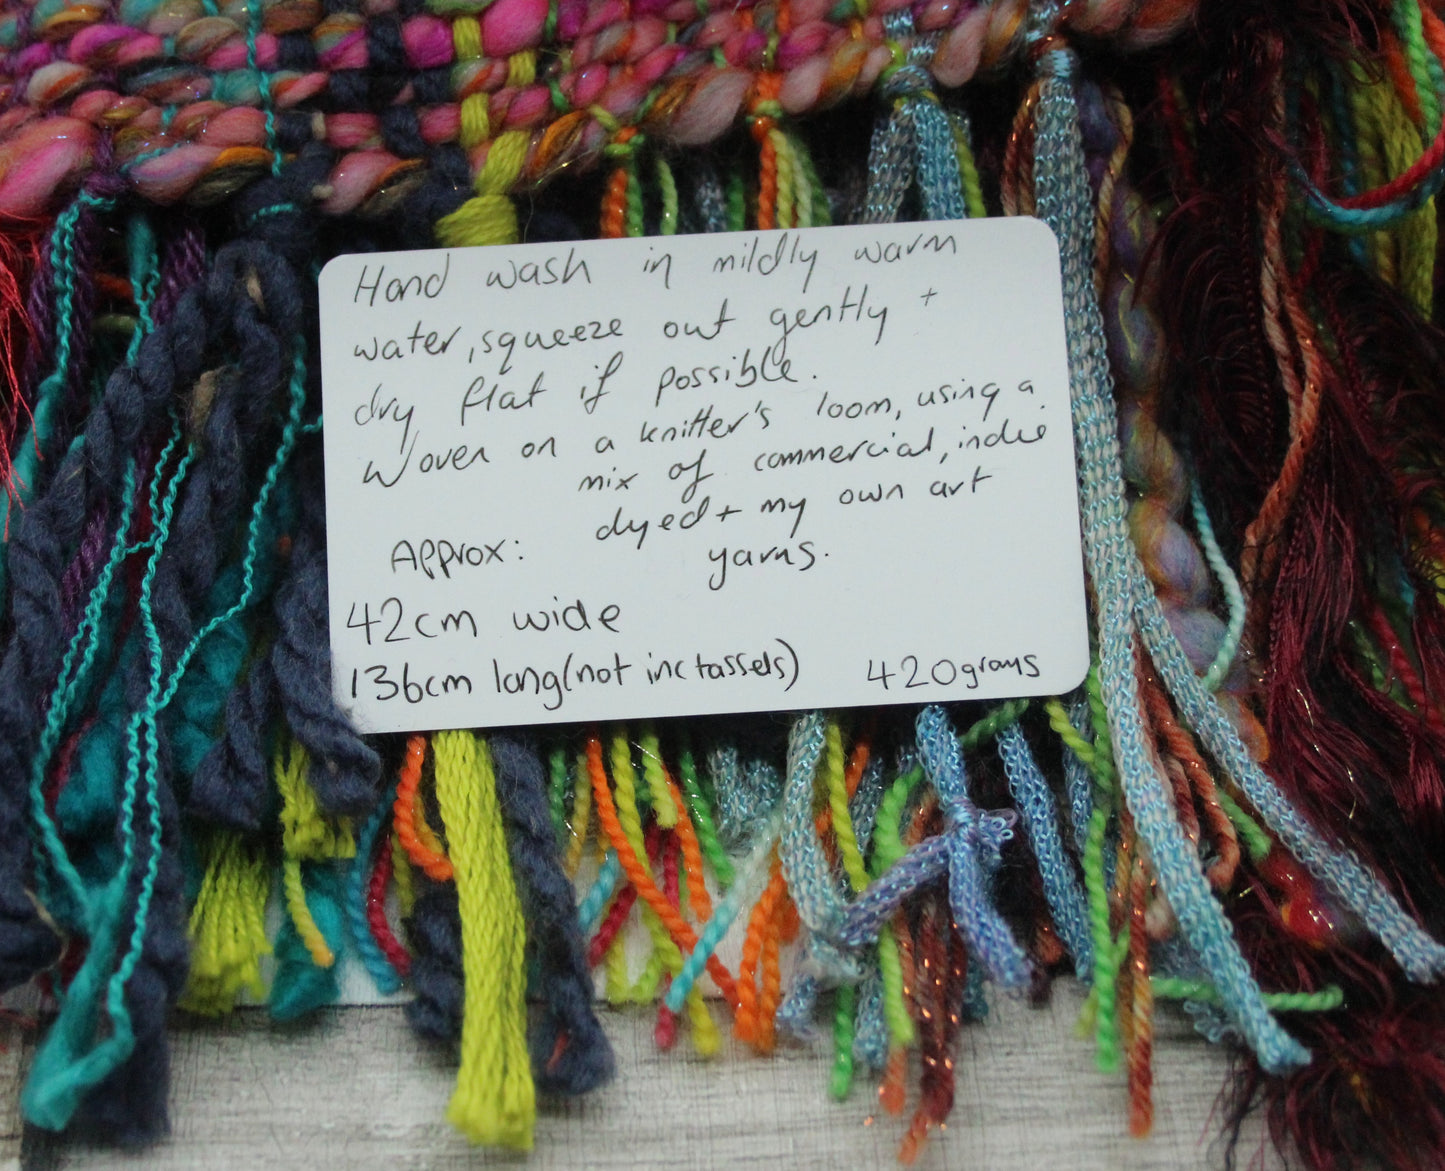 Hand wash in mildly warm
water, squeeze out gently +
dry flat if possible.
Woven on a knitter's loom, using a
mix of commercial, indie
dyed + my own art
yarns.
Approx:
42cm wide
136cm long (not inc tassels)
420grams